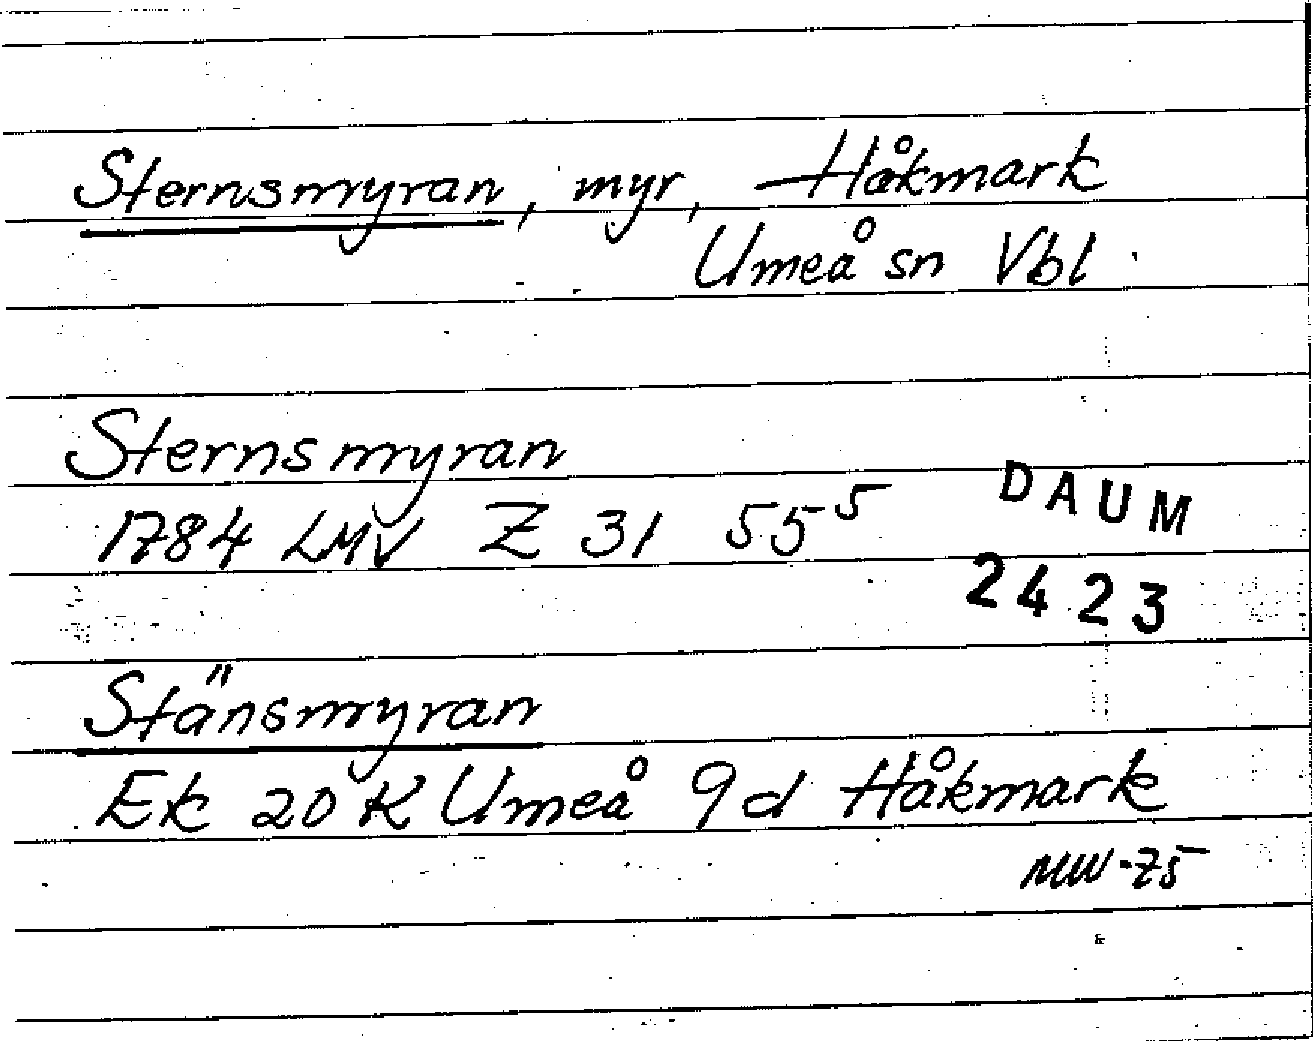 Sternsmyran, myr, Håkmark
Umeå sn Vbl
Sternsmyran
1784 LMV Z 31 55⁵
DAUM
2423
Stänsmyran
Ek 20 K Umeå 9d Håkmark
MW-75